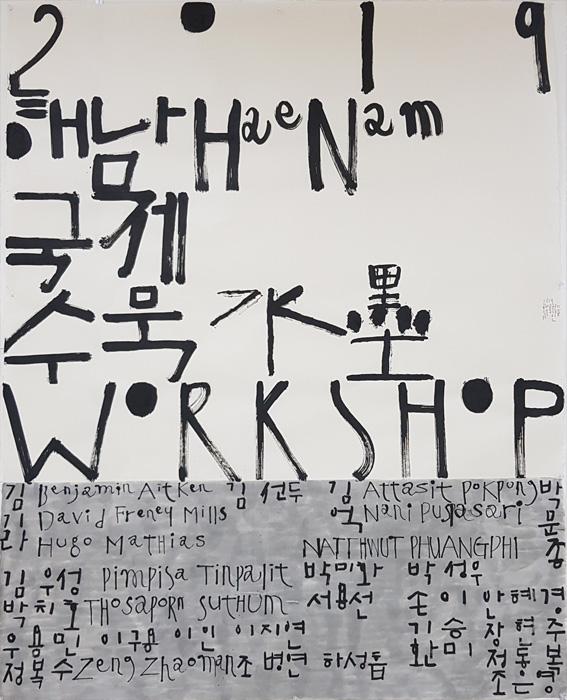 2019
해남 HaeNam
국제
수묵 水墨
WORKSHOP
김 Benjamin Aitken 김선두 김 Attasit Pokpong 박
기 David Freney Mills 억 Nani Puspasari 문
라 Hugo Mathias NATTHWUT PHUANGPHI 종
김우성 Pimpisa Tinpalit 박미화 박성우
박치호 THosaporn suthum 서용선 손이 안혜경
우용민 이구용 이인 이지연 김승 장현주
정복수 Zeng Zhaoman 조병연 하성흡 환미 복
조은령